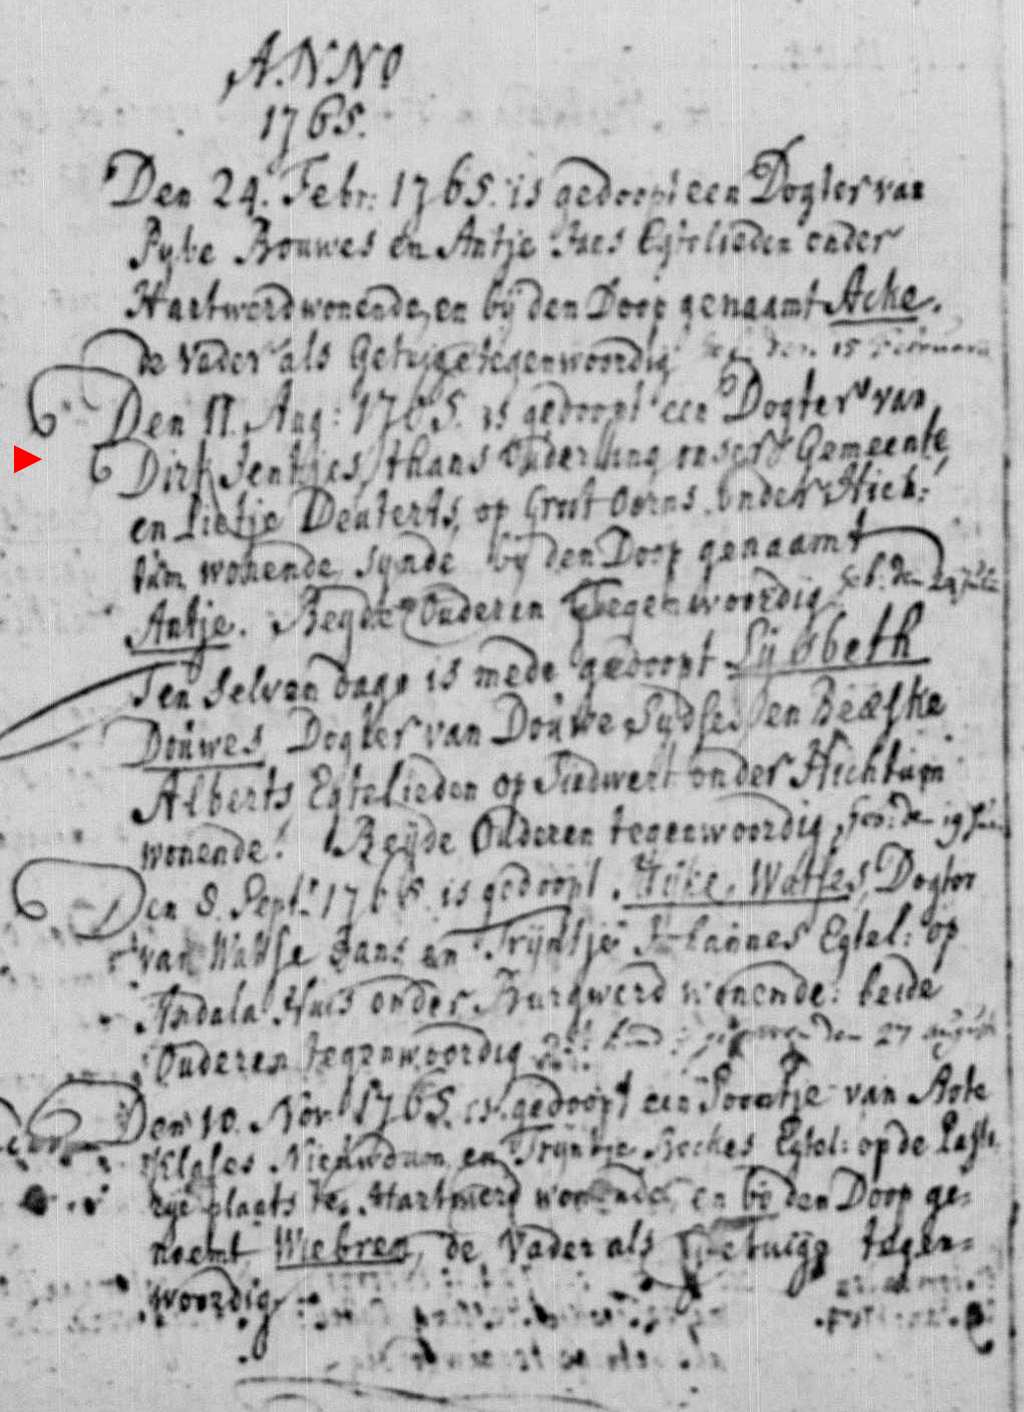 ANNO
1765.
Den 24. Febr: 1765. is gedoopt een Dogter van
Pybe Bouwes en Antje Ites Egtelieden onder
Hartwerd wonende, en bij den Doop genaamt Acke.
de Vader als Getuige tegenwoordig geb. den 15 Februarii
Den 11. Aug: 1765. is gedoopt een Dogter van
Dirk Jentjes, thans Ouderling onser Gemeente
en Lietje Deuterts, op Groot Oorns onder Hich:
tum wonende, synde bij den Doop genaamt
Antje. Beyde Ouderen Tegenwoordig geb. den 29 Julii
Ten selven dage is mede gedoopt Lijsbeth
Douwes Dogter van Douwe Sydses en Beeske
Alberts Egtelieden op Tiedwert onder Hichtum
wonende. Beijde Ouderen tegenwoordig, geb: den 19 Jul.
Den 8. Sept. 1765. is gedoopt Hijke Watses, Dogter
van Watse Jans en Trijntje Johannes Egtel: op
Andala Huis onder Burgwerd wonende: beide
Ouderen tegenwoordig den 27 august
Den 10. Nov. 1765. is gedoopt een Soontje van Acte
Klases Nieuwdum en Trijntje Beekes Egtel: op de Past.
rije plaats te Hartwerd wonende, en bij den Doop ge=
noemt Wiebren, de Vader als Getuige tegen=
woordig.